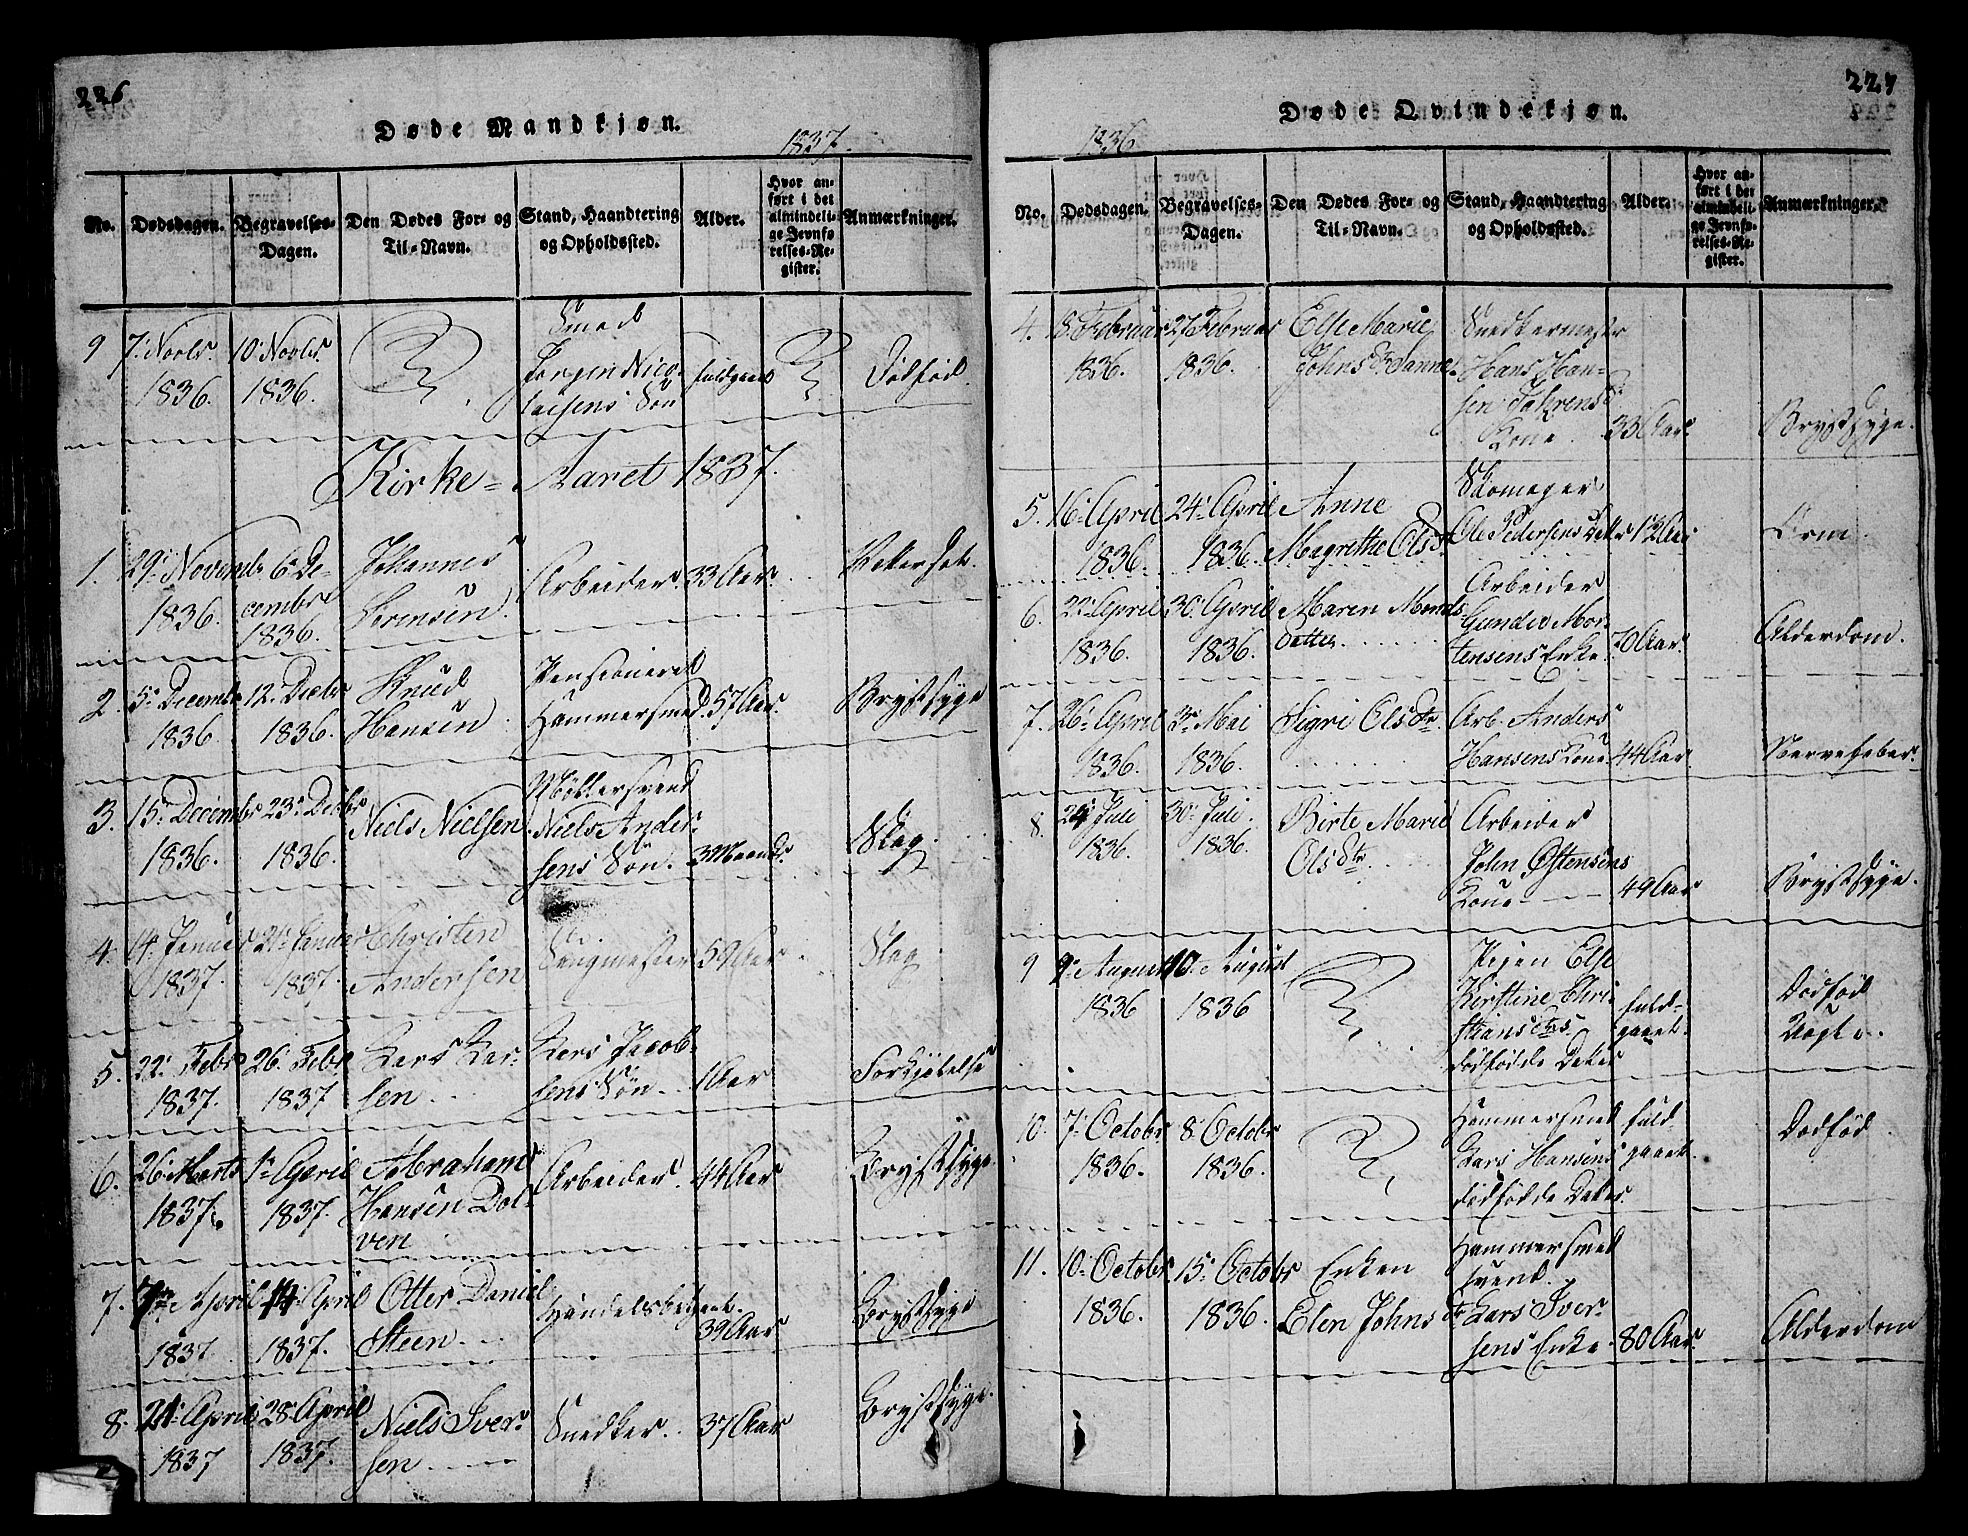 226
Døde Mandkjøn.
1837.
No. Dødsdagen. Begravelses-Dagen. Den Dødes For- og Til-Navn. Stand, Haandtering og Opholdssted. Alder. Hvor anført i det almindelige Jevnførelses-Register. Anmærkninger.
9 7de Novbr. 10. Novbr. Smed
1836. 1836. Jørgen Nico- fuldgaaet Dødfød.
laisens Søn
Kirke-Aaret 1837.
1. 29. Novemb. 6. De- Johannes Arbeider 33 Aar
1836. cembr Sørensen.
1836.
2. 5. Decemb. 12. Decbr Knud Pensioneret
1836. 1836. Hansen Hammersmed. 57 Aar. Brystsyge
3. 15. Decembr 23. Decbr Niels Nielsen Møllersvend
1836. 1836. Niels Ander-
sens Søn. 3 Maaneder Slag.
4. 14. Januar 21. Januar Christen
1837. 1837. Andersen 59 Aar Slag
5. 22. Febr 26. Febr Lars Lar- Lars Jacob-
1837. 1837 sen sens Søn. 1 Aar Forkjølelse
6. 26. Marts 1. April Abraham Arbeider. 44 Aar Brystsyge.
1837. 1837. Hansen Dol-
ven
7. April 14. April Otter Daniel Handelsbetjent.
1837. 1837. Steen 39 Aar Brystsyge
8. 21. April 28. April Niels Iver- Snedker. 37 Aar Brystsyge.
1837 1837. sen
227
Døde Qvindekjøn.
1836
No. Dødsdagen. Begravelses-Dagen. Den Dødes For- og Til-Navn. Stand, Haandtering og Opholdssted. Alder. Hvor anført i det almindelige Jevnførelses-Register. Anmærkninger.
4. Februar 27. Februar Else Marie Snedkermester
1836. 1836. Hans Han-
sen
Kone. 33 Aar. Brystsyge.
5. 16. April 24. April Anne Skomager
1836. 1836. Magrethe Olsdr Ole Pedersens Datter 13 Aar Orm.
6. 22. April 30. April Maren Arbeider
1836. 1836. Datter Gunder Mor-
tensens Enke. 70 Aar. Alderdom.
7. 26. April 3. Mai Sigri Olsdr Arb. Anders
1836. 1836. Hansens Kone 44 Aar Nervefeber.
8. 24. Juli 30. Juli. Birte Marie Arbeider
1836. 1836. Olsdr John Østensens
Kone 49 Aar Brystsyge.
9 9. August 10. August Pigen Else
1836 1836 Kirstine Chri- fuld- Dødfød
stiansdtrs gaaet. Uægte.
dødfødde Datter
10. 7. Octobr 8. Octobr Hammersmed fuld- Dødfød
1836. 1836. Lars Hansens gaaet.
dødfødde Datter
11. 10. Octobr. 15. Octobr Enken Hammersmed
svend.
1836. 1836. Elen Johnsdr Lars Iver-
sens Enke. 80 Aar. Alderdom